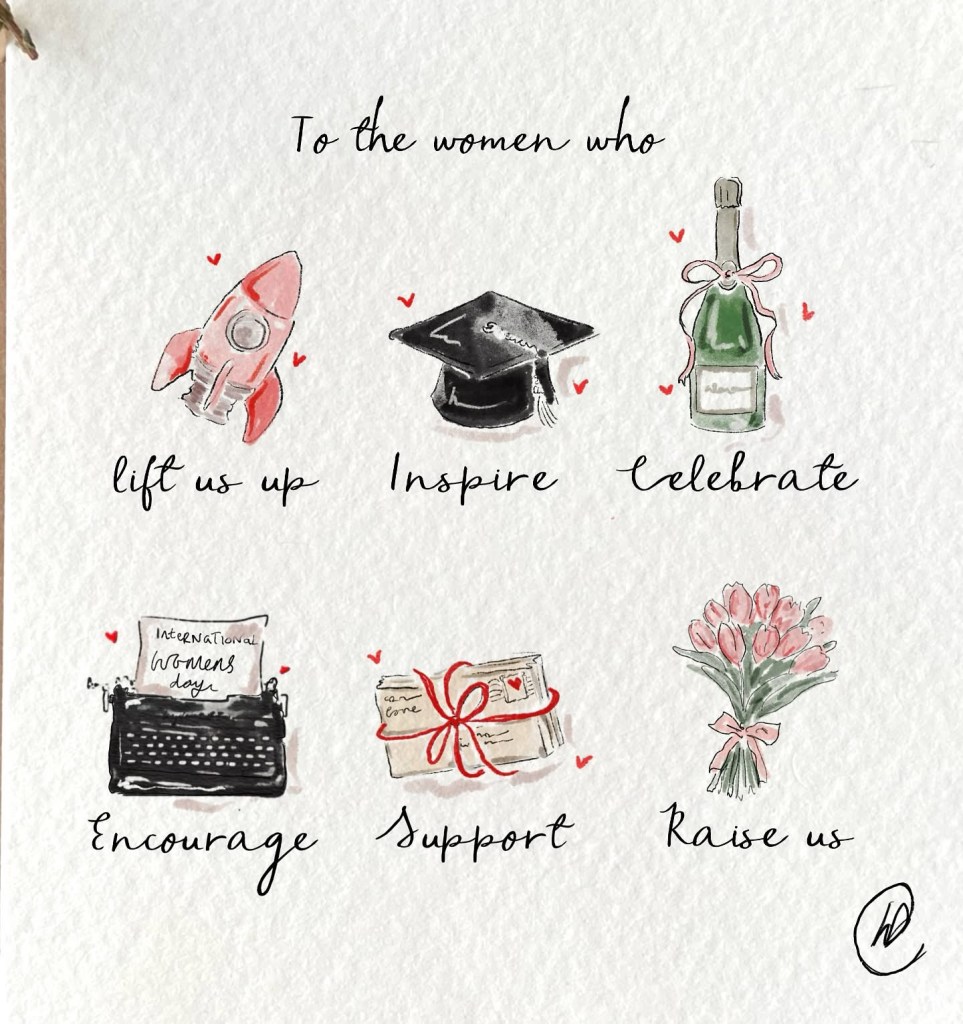 To the women who
lift us up
Inspire
Celebrate
INTERNATIONAL
WOMENS
day
Encourage
Support
Raise us